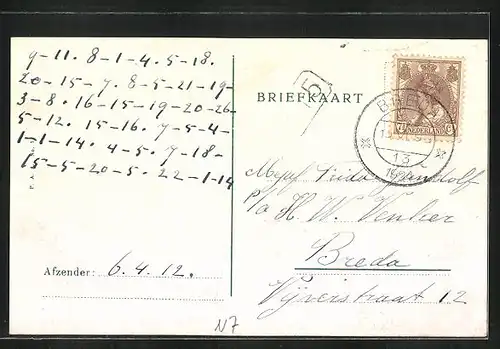 9-11. 8-1-4. 5-18.
20-15-7. 8-5-21-19-
3-8. 16-15-19-20-26-
5-12. 15-16. 7-5-4-
1-1-14. 4-5. 7-18-
15-5-20-5. 22-1-14
Afzender: 6.4.12.
N7
5
BRIEFKAART
7½ NEDERLAND C
BREDA
13
Mejuf. Frida
p/a H. W. Venker
Breda
Vijverstraat 12